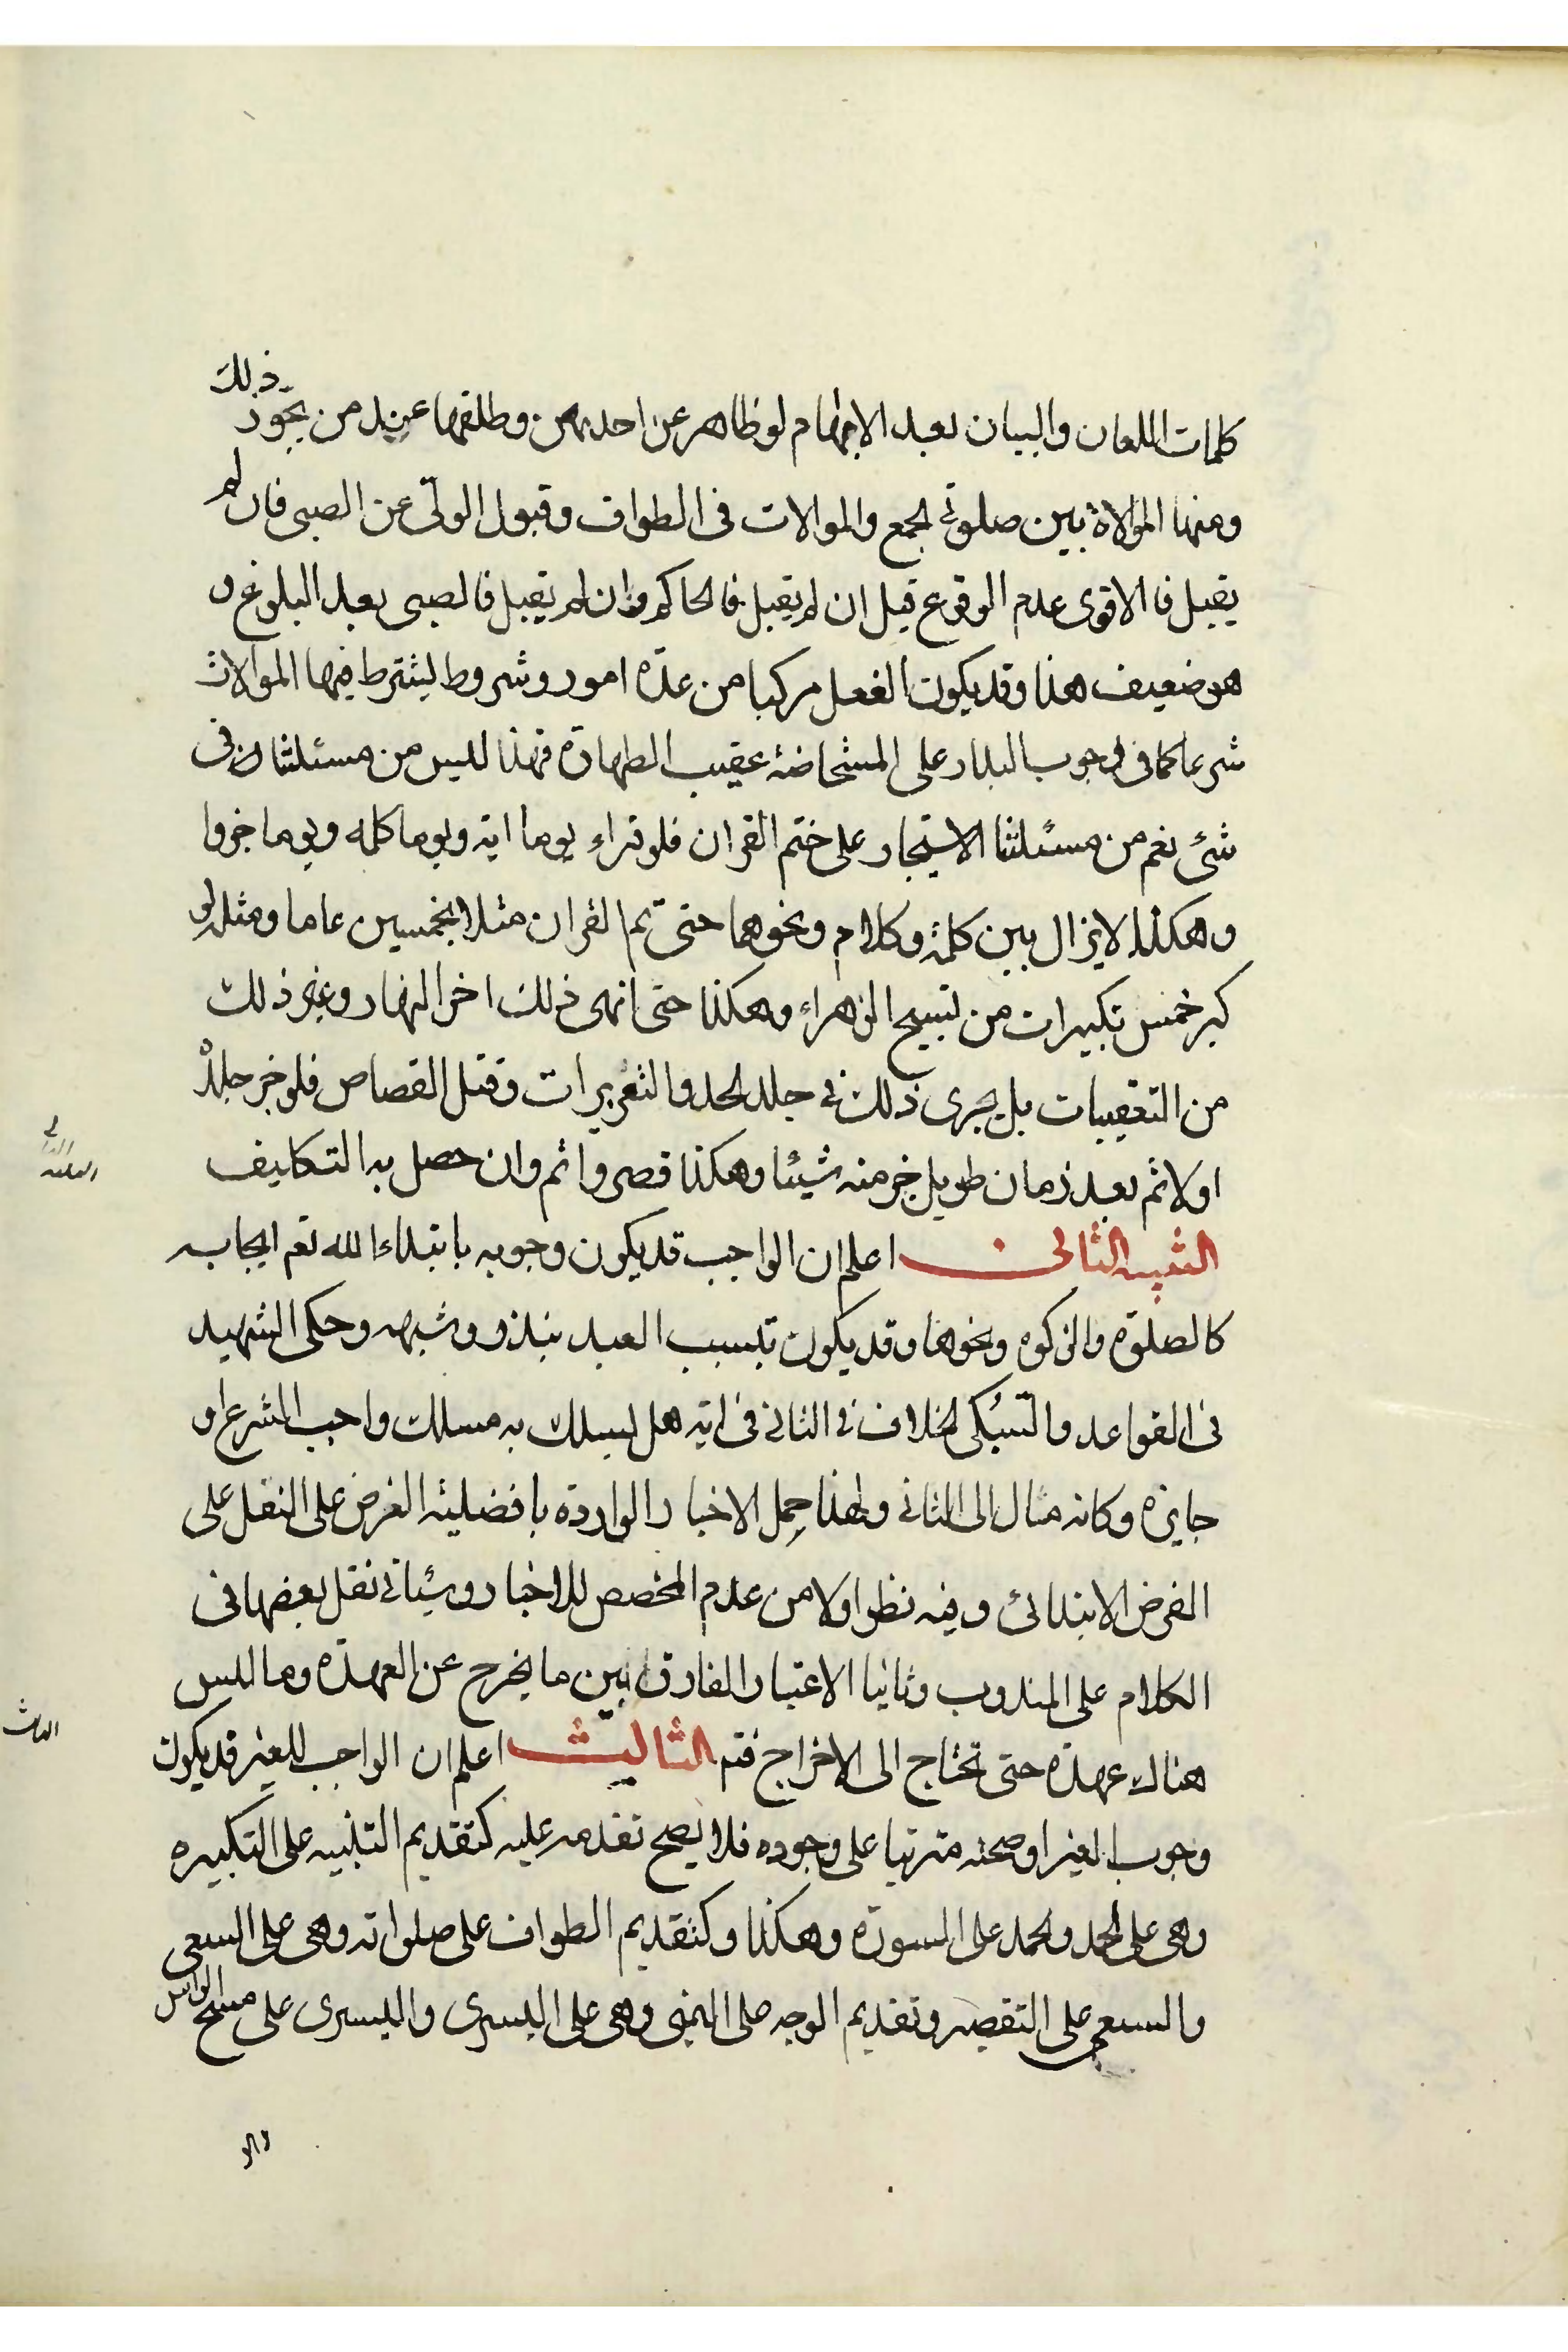 كلمات اللعان والبيان بعد الابهام لو ظاهر عن احديهن وطلقها عند من يجوز ذلك
ومنها الموالاة بين صلوتي الجمع والموالات فى الطواف وقبول الولى عن الصبى فان لم
يقبل فالاقوى عدم الوقوع قيل ان لم يقبل فالحاكم وان لم يقبل فالصبى بعد البلوغ و
هو ضعيف هذا وقد يكون الفعل مركبا من عدة امور وشروط ليشترط فيها الموالات
شرعا كما فى وجوب البدار على المستحاضة عقيب الطهارة فهذا ليس من مسئلتنا فى
شئ نعم من مسئلتنا الاستيجار على ختم القران فلو قراء يوما اية ويوما كلمه ويوما حروفا
وهكذا لا يزال بين كلمة وكلام ونحوهما حتى تم القران مثلا بخمسين عاما ومثله لو
كبر خمس تكبيرات من تسبيح الزهراء وهكذا حتى انهى ذلك اخر النهار وغير ذلك
من التعقيبات بل يجرى ذلك فى جلد الحد والتعزيرات وقتل القصاص فلو خر جلده
اولا ثم بعد زمان طويل خر منه شيئا وهكذا قصر واثم وان حصل به التكليف
التنبيه الثانى اعلم ان الواجب قد يكون وجوبه بابتداء الله تعم ايجابه
كالصلوة والزكوه ونحوها وقد يكون بتسبب العبد بنذر وشبهه وحكى الشهيد
فى القواعد والسبكى الخلاف فى الثانى فى انه هل يسلك به مسلك واجب الشرع او
جايزه وكانه مال الى الثانى ولهذا حمل الاخبار الواردة بافضلية الفرض على النفل على
الفرض الابتدائى وفيه نظر اولا من عدم المخصص للاخبار وسيأتى نقل بعضها فى
الكلام على المندوب وثانيا الاعتبار الفارق بين ما يخرج عن العهدة وما ليس
هناك عهدة حتى تحتاج الى الاخراج فتم الثالث اعلم ان الواجب للغير قد يكون
وجوب الغير او صحته مترتبا على وجوده فلا يصح تقدمه عليه كتقديم التلبيه على التكبيره
وهى على الحمد والحمد على السورة وهكذا وكتقديم الطواف على صلواته وهى على السعى
والسعى على التقصير وتقديم الوجه على اليمنى وهى على اليسرى واليسرى على مسح الراس